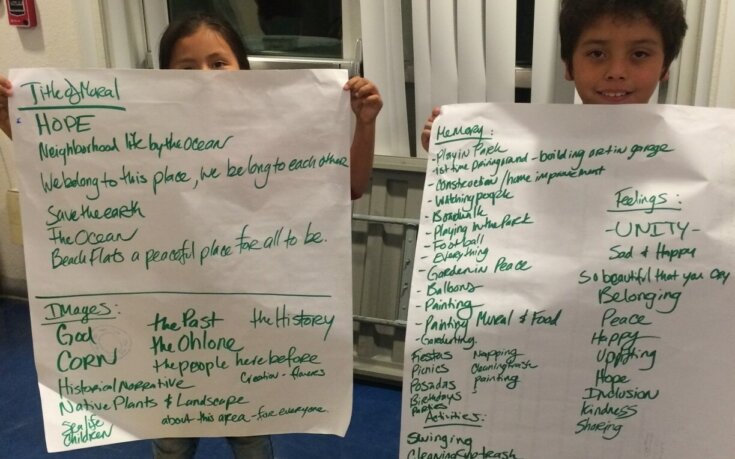 Title of Mural
HOPE
Neighborhood life by the ocean
We belong to this place, we belong to each other
Save the earth
The Ocean
Beach Flats a peaceful place for all to be.
Images:
God
CORN
Historical Narrative
Native Plants & Landscape
Sea life
Children
the Past
the History
the Ohlone
the people here before
Creation - flowers
about this area - for everyone.
Memory:
- Play in Park
- 1st time driving round - building art in garage
- Construction / home improvement
- Watching people
- Boardwalk
- Playing in the Park
- Football
- Everything
- Garden in Peace
- Balloons
- Painting
- Painting Mural & Food
- Gardening
Fiestas
Picnics
Posadas
Birthdays
Parties
Napping
Cleaning trash
Painting
Activities:
Swinging
Cleaning up trash
Feelings:
- UNITY -
Sad & Happy
So beautiful that you cry
Belonging
Peace
Happy
Uplifting
Hope
Inclusion
Kindness
Sharing